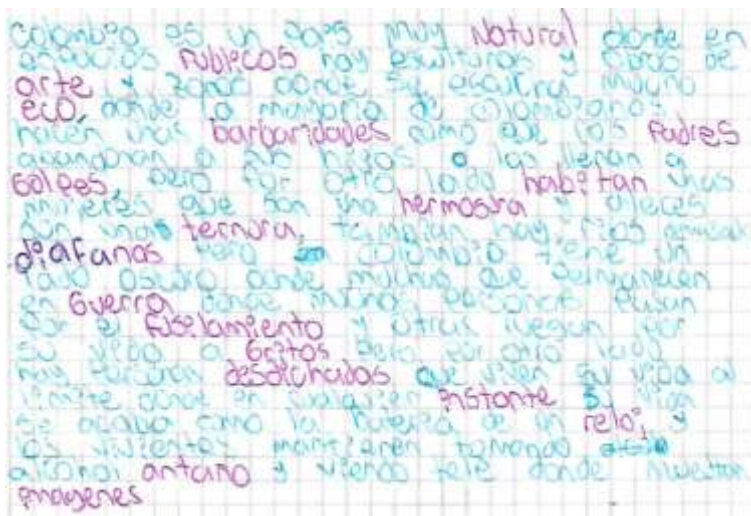 Colombia es un país muy Natural donde en
espacios Publicos hay esculturas y obras de
arte y zonas donde se escucha mucho
eco, donde la mayoria de colombianos
hacen unas barbaridades como que los Padres
abandonan a sus hijos o los llenan a
Golpes, pero por otro lado habitan unas
mujeres que son una hermosura y
son unas ternura, tambien hay rios
diafanas pero colombia tiene un
lado oscuro donde muchos que permanecen
en Guerra donde muchas personas Pasan
por el fusilamiento y otras ruegan por
su vida a Gritos pero por otro lado
hay personas desdichados que viven su vida al
limite donde en cualquier instante su vida
se acaba como la bateria de un reloj, y
los vivientes mantienen tomando
alcohol antaño y viendo tele donde muestran
imagenes